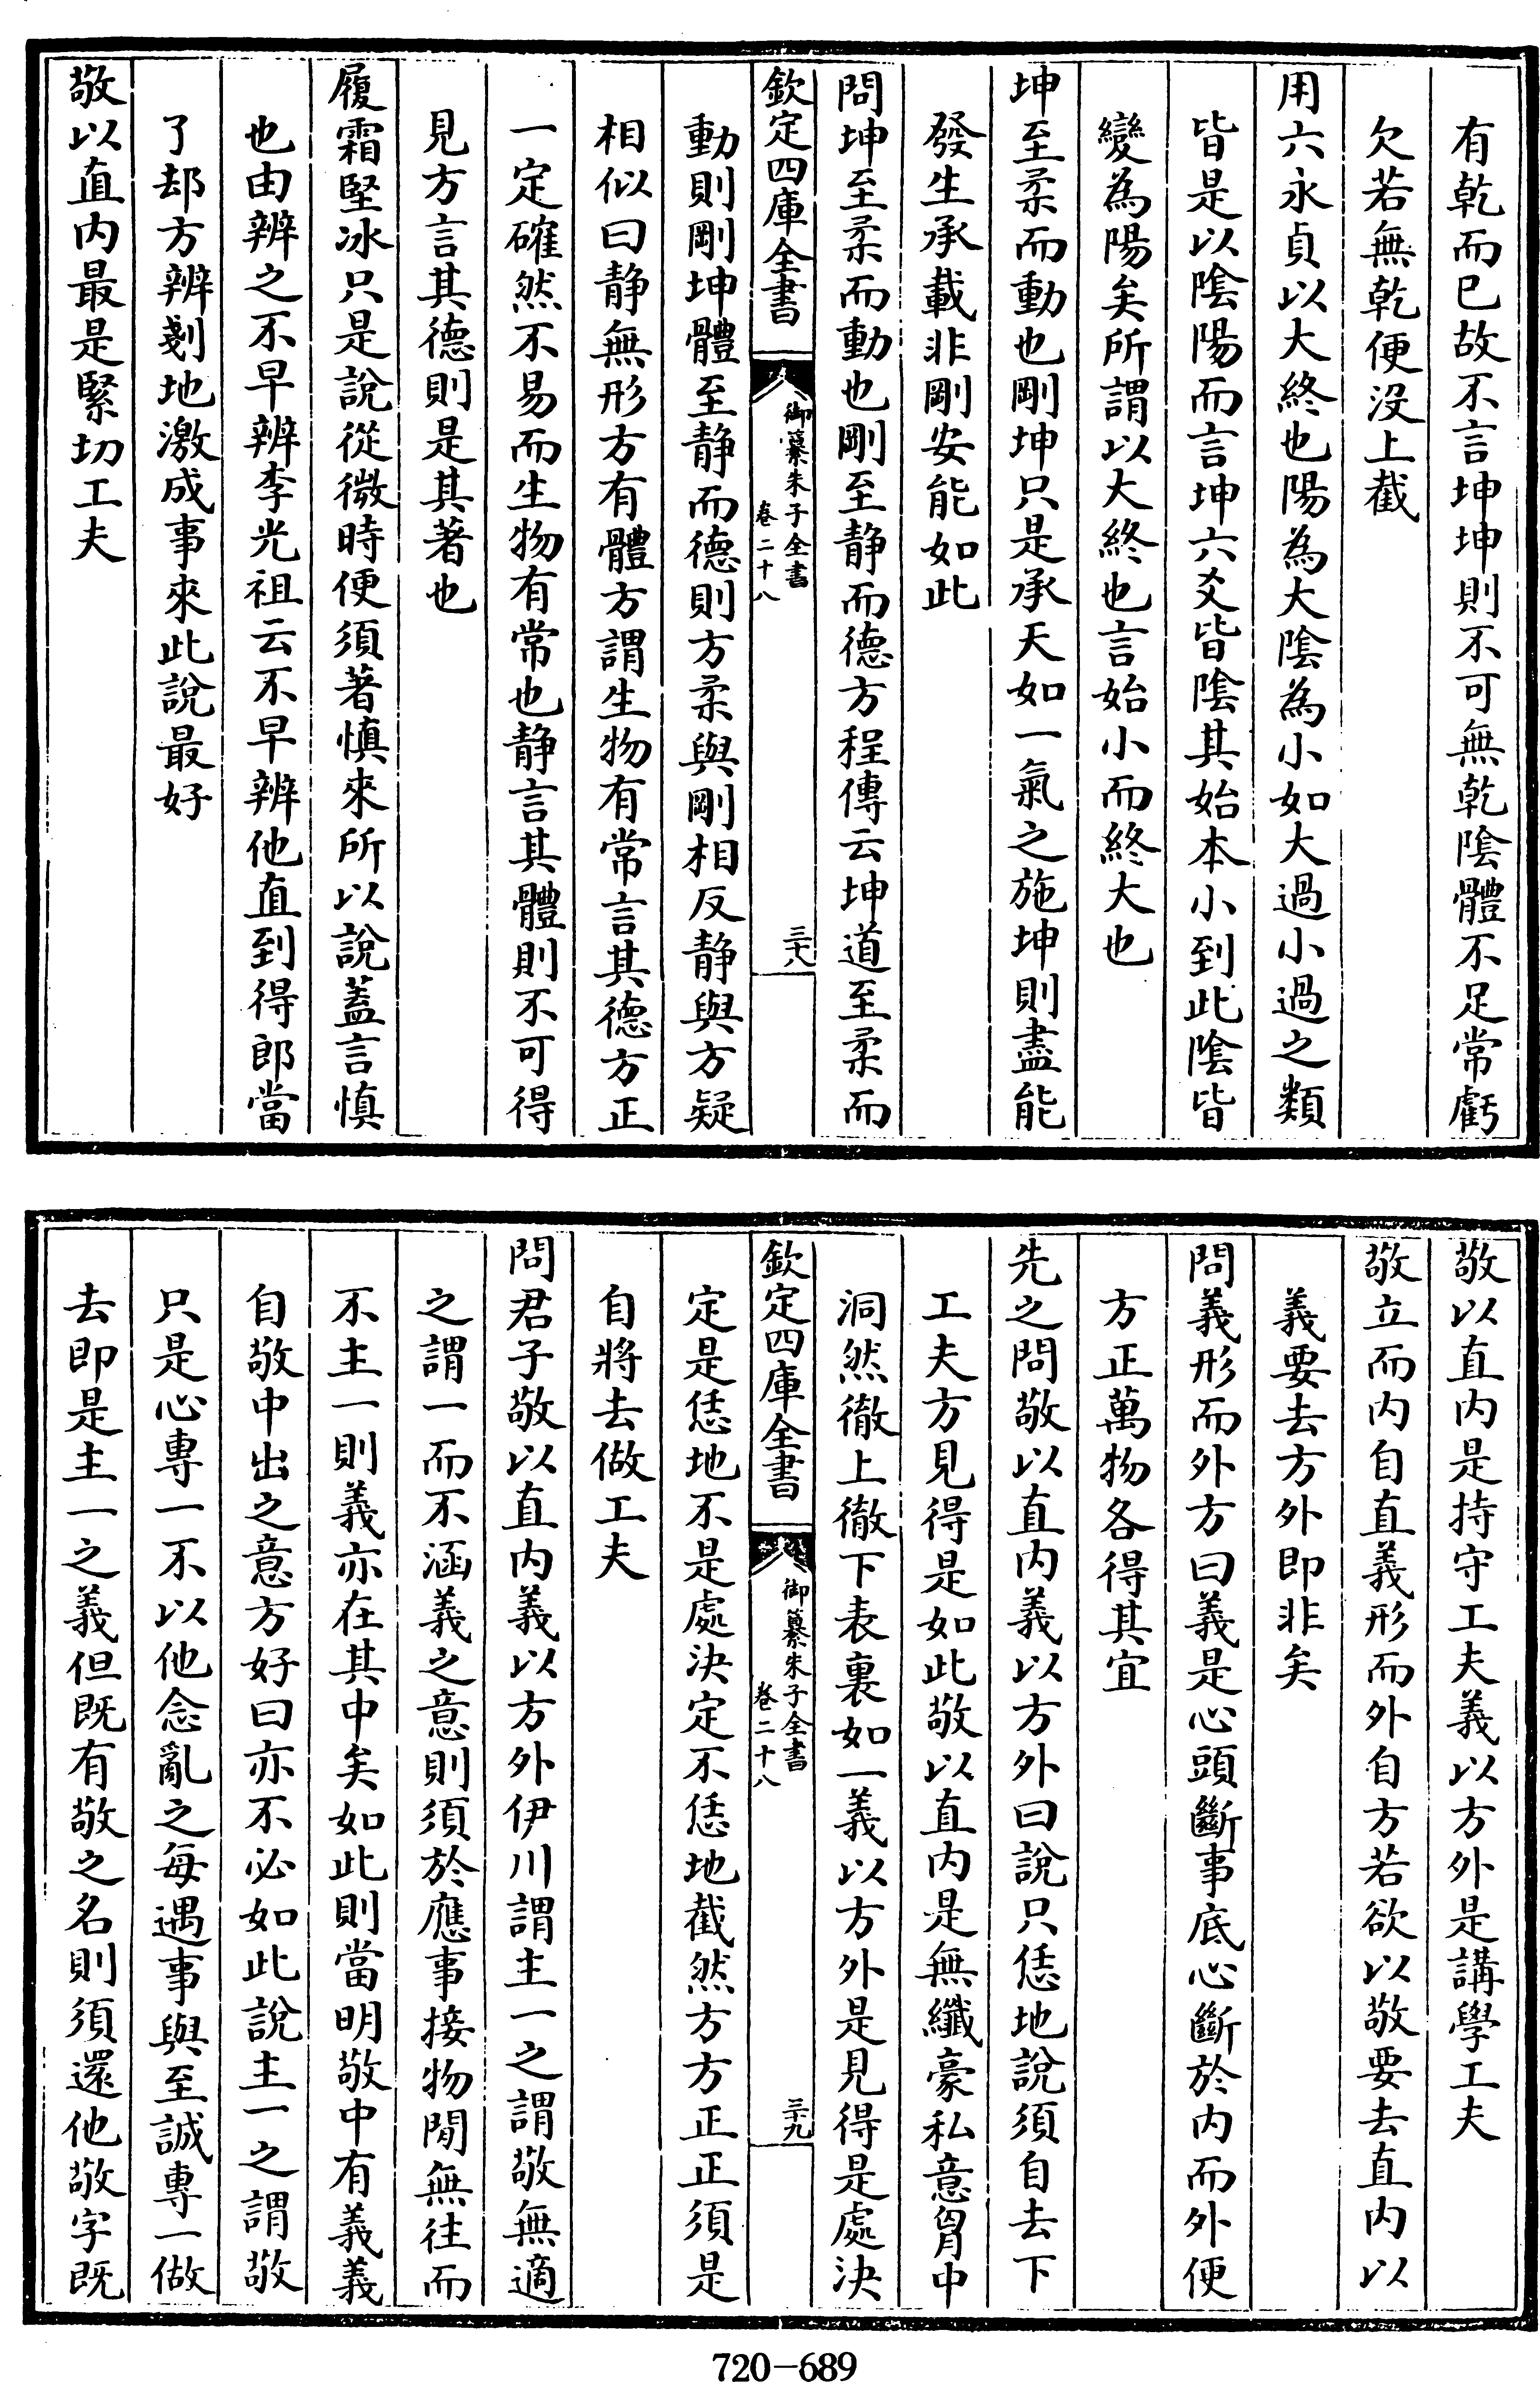 有乾而已故不言坤坤則不可無乾陰體不足常虧
欠若無乾便没上截
用六永貞以大終也陽為大陰為小如大過小過之類
皆是以陰陽而言坤六爻皆陰其始本小到此陰皆
變為陽矣所謂以大終也言始小而終大也
坤至柔而動也剛坤只是承天如一氣之施坤則盡能
發生承載非剛安能如此
問坤至柔而動也剛至静而德方程傳云坤道至柔而
欽定四庫全書
御纂朱子全書
卷二十八
三十八
動則剛坤體至静而德則方柔與剛相反静與方疑
相似曰静無形方有體方謂生物有常言其德方正
一定確然不易而生物有常也静言其體則不可得
見方言其德則是其著也
履霜堅冰只是說從微時便須著慎來所以說蓋言慎
也由辨之不早辨李光祖云不早辨他直到得郎當
了却方辨剗地激成事來此說最好
敬以直内最是緊切工夫
敬以直内是持守工夫義以方外是講學工夫
敬立而内自直義形而外自方若欲以敬要去直内以
義要去方外即非矣
問義形而外方曰義是心頭斷事底心斷於内而外便
方正萬物各得其宜
先之問敬以直内義以方外曰說只恁地說須自去下
工夫方見得是如此敬以直内是無纖豪私意胷中
洞然徹上徹下表裏如一義以方外是見得是處決
欽定四庫全書
御纂朱子全書
卷二十八
三十九
定是恁地不是處決定不恁地截然方方正正須是
自將去做工夫
問君子敬以直内義以方外伊川謂主一之謂敬無適
之謂一而不涵義之意則須於應事接物間無往而
不主一則義亦在其中矣如此則當明敬中有義義
自敬中出之意方好曰亦不必如此說主一之謂敬
只是心專一不以他念亂之每遇事與至誠專一做
去即是主一之義但既有敬之名則須還他敬字既
720-689